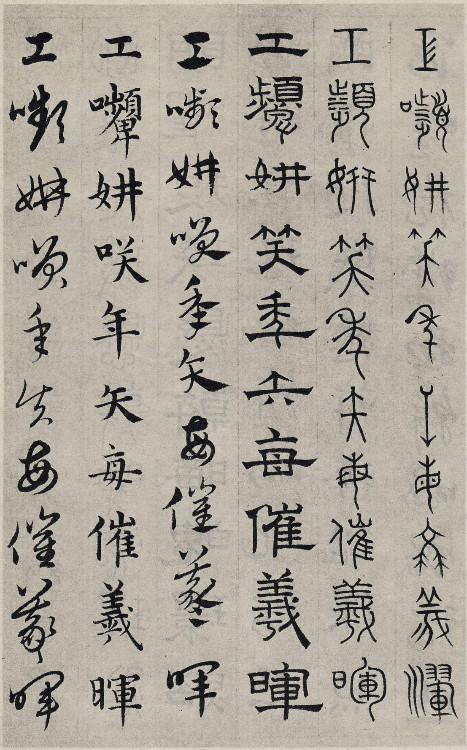 工嚬妍笑年矢每催羲暉
工嚬妍笑年矢每催羲暉
工顰妍笑年矢每催羲暉
工嚬妍咲年矢每催羲暉
工嚬妍咲年矢每催羲暉
工嚬妍咲年矢每催羲暉